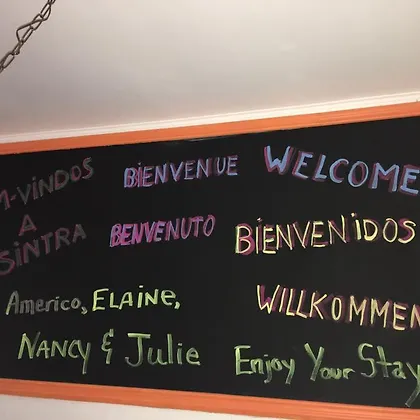 M-VINDOS BIENVENUE WELCOME
A
SINTRA BENVENUTO BIENVENIDOS
Americo, ELAINE, WILLKOMMEN
NANCY & Julie Enjoy Your Stay